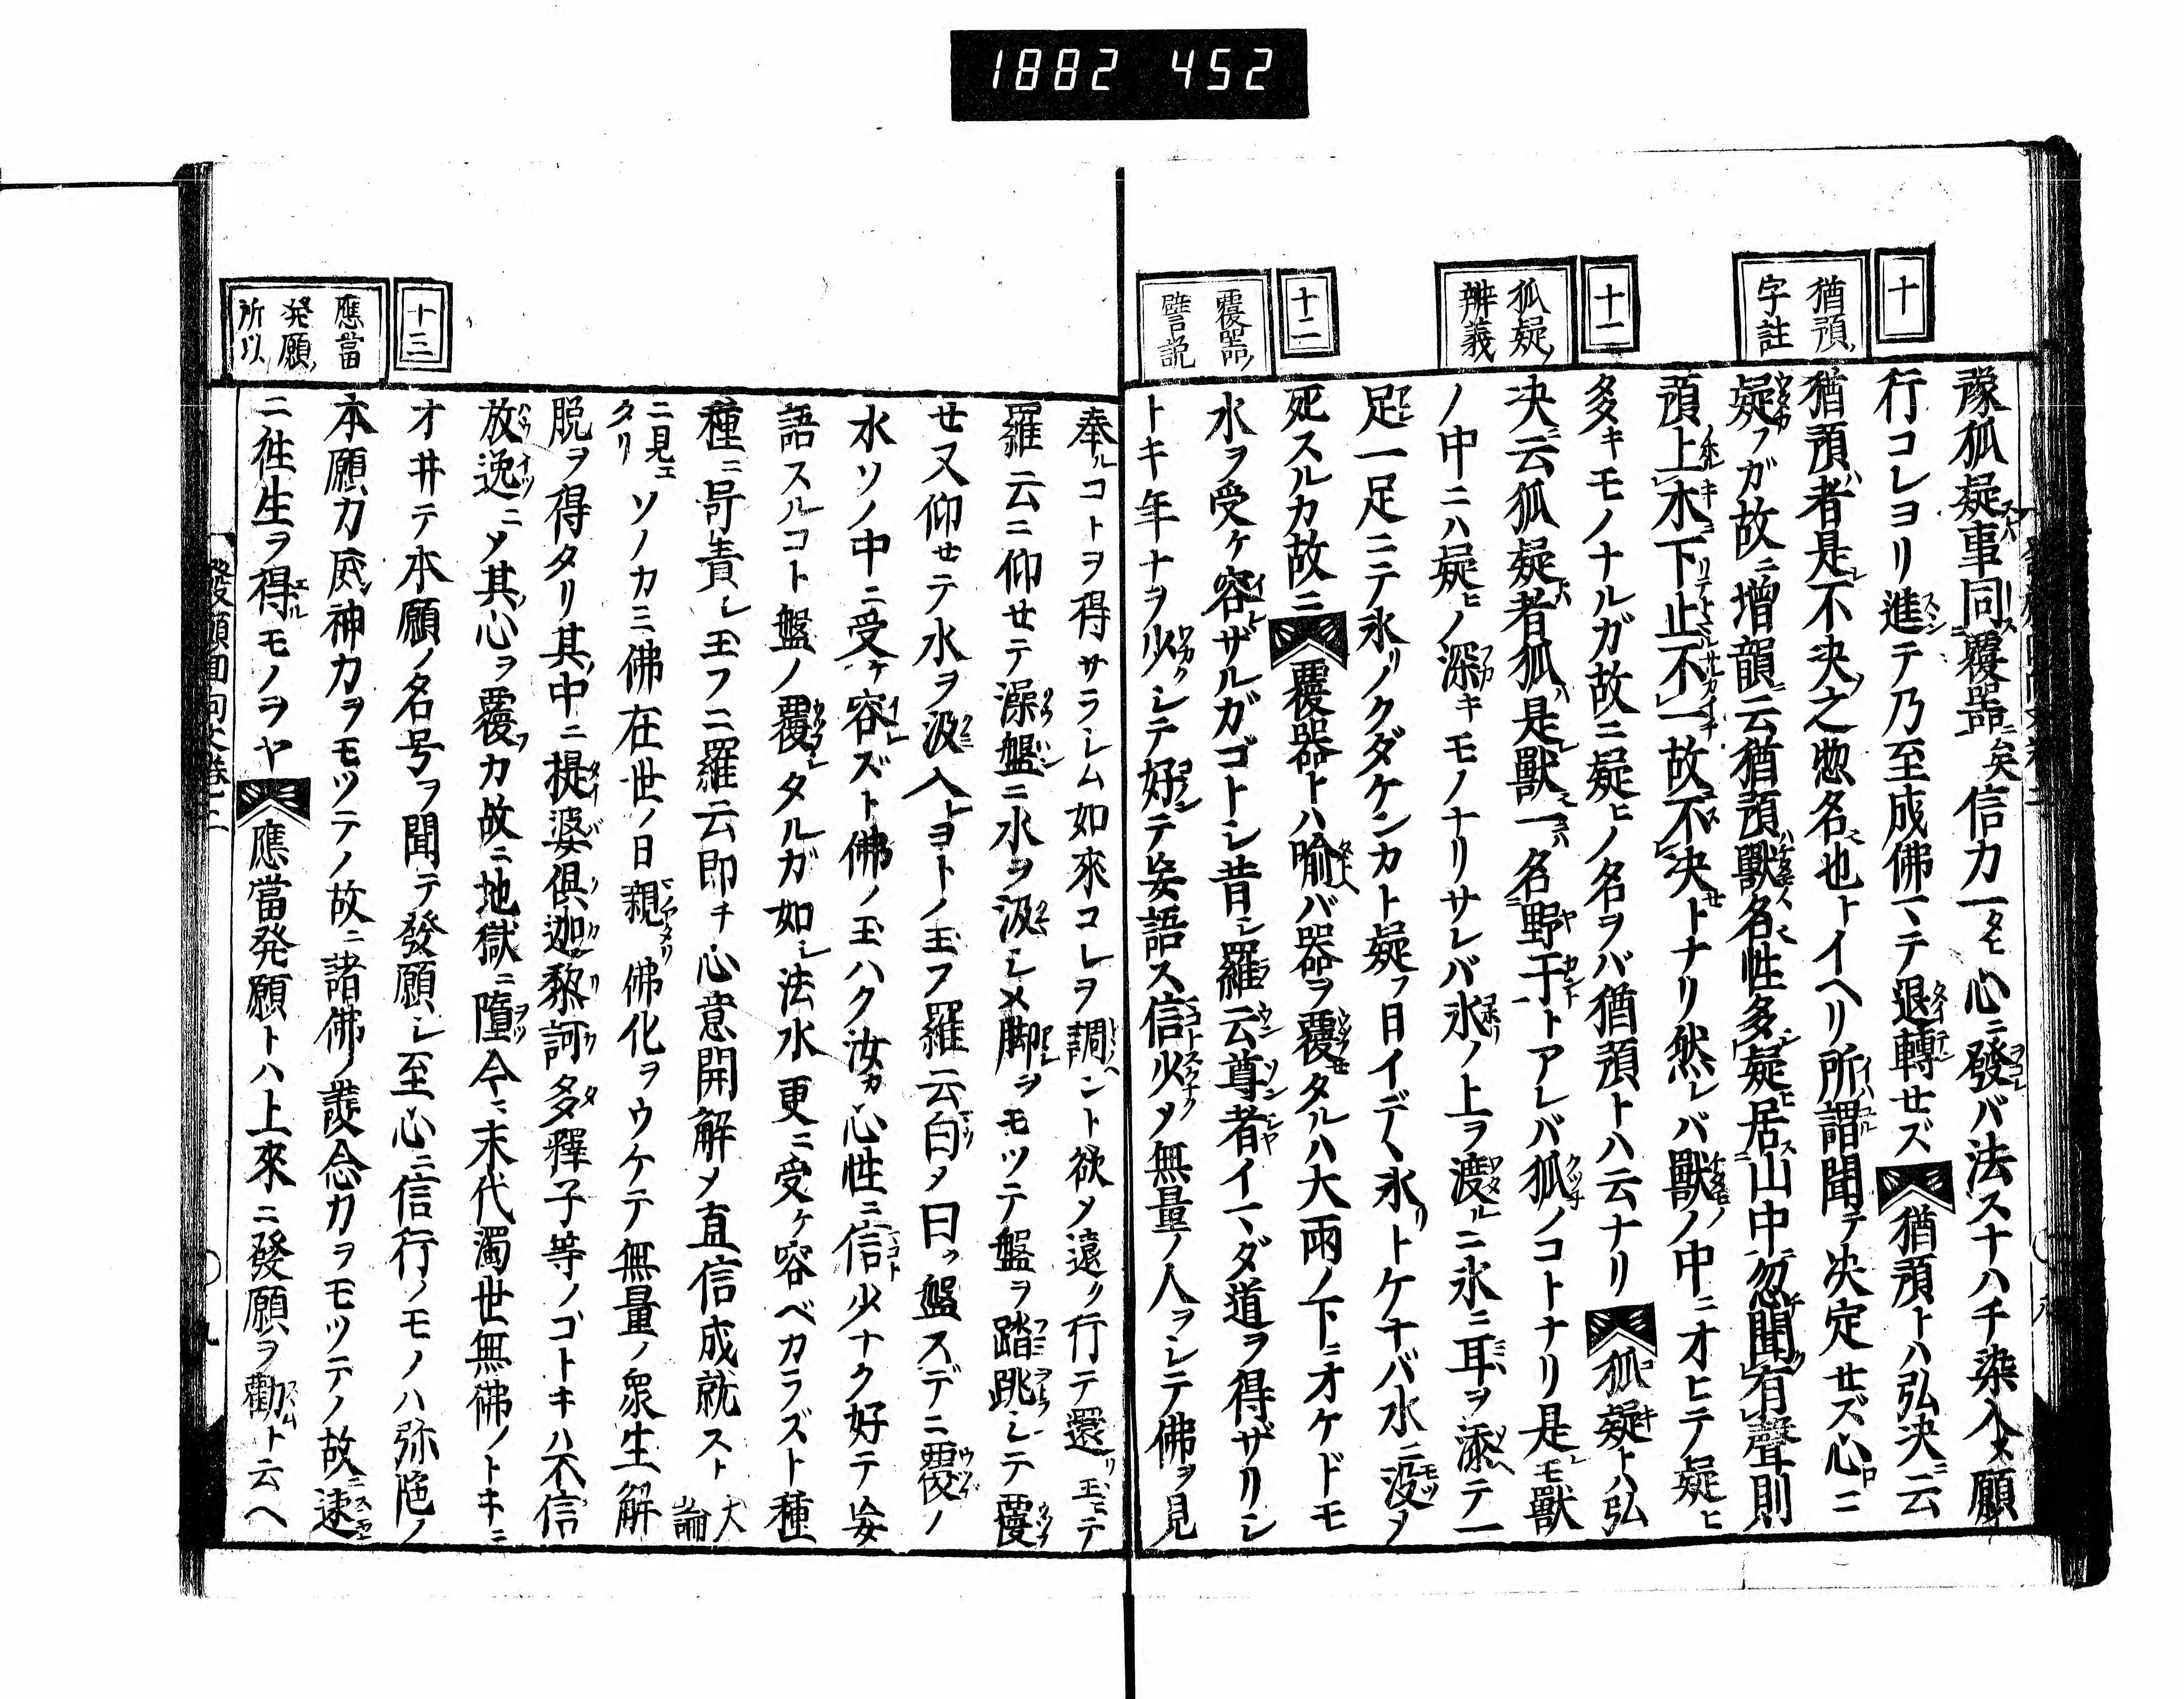 1882 452
十
猶預ノ
字註
十一
狐疑ノ
辨義
十二
覆器ノ
譬説
豫狐疑車同覆器ニ矣信力一タヒ心ニ發バ法スナハチ染入メ願
行コレヨリ進テ乃至成佛マテ退轉セズ猶預トハ弘決ニ云
猶預者是不決之惣名也トイヘリ所謂聞テ決定セズ心ニ
疑フガ故ニ増韻ニ云猶預獸名性多疑居山中忽聞有聲則
預上木下止不一故不決トナリ然レバ獸ノ中ニオヒテ疑ヒ
多キモノナルガ故ニ疑ヒノ名ヲバ猶預トハ云ナリ狐疑トハ弘
決ニ云狐疑者狐是獸一名野干トアレバ狐ノコトナリ是モ獸
ノ中ニハ疑ヒノ深キモノナリサレバ氷ノ上ヲ渡ルニ氷ニ耳ヲ添テ一
足一足ニテ氷リノクダケンカト疑フ日イデヽ氷リトケナバ水ニ沒メ
死スルカ故ニ覆器トハ喻バ器ヲ覆タルハ大雨ノ下ニオケドモ
水ヲ受ケ容ザルガゴトシ昔シ羅云尊者イマダ道ヲ得ザリシ
トキ年ナヲ少クシテ好テ妄語ス信少メ無量ノ人ヲシテ佛ヲ見
十三
應當
発願ノ
所以
奉ルコトヲ得サラシム如來コレヲ調ント欲メ遠ク行テ還リ玉ヒテ
羅云ニ仰セテ澡盤ニ水ヲ汲シメ脚ヲモツテ盤ヲ踏跳シテ覆
セ又仰セテ水ヲ汲入ヨトノ玉フ羅云白メ曰ク盤スデニ覆ノ
水ソノ中ニ受ケ容ズト佛ノ玉ハク汝カ心性ニ信少ナク好テ妄
語スルコト盤ノ覆タルガ如シ法水更ニ受ケ容ベカラズト種
種ニ呵責シ玉フニ羅云即チ心意開解メ直信成就スト大論
ニ見エタリソノカミ佛在世ノ日親佛化ヲウケテ無量ノ衆生解
脱ヲ得タリ其中ニ提婆倶迦黎訶多釋子等ノゴトキハ不信
放逸ニメ其心ヲ覆カ故ニ地獄ニ墮今ニ末代濁世無佛ノトキニ
オ井テ本願ノ名号ヲ聞テ發願シ至心ニ信行ノモノハ弥陀ノ
本願力威神力ヲモツテノ故ニ諸佛ノ護念力ヲモツテノ故ニ速
ニ往生ヲ得ルモノヲヤ應當発願トハ上來ニ發願ヲ勸ムト云ヘ